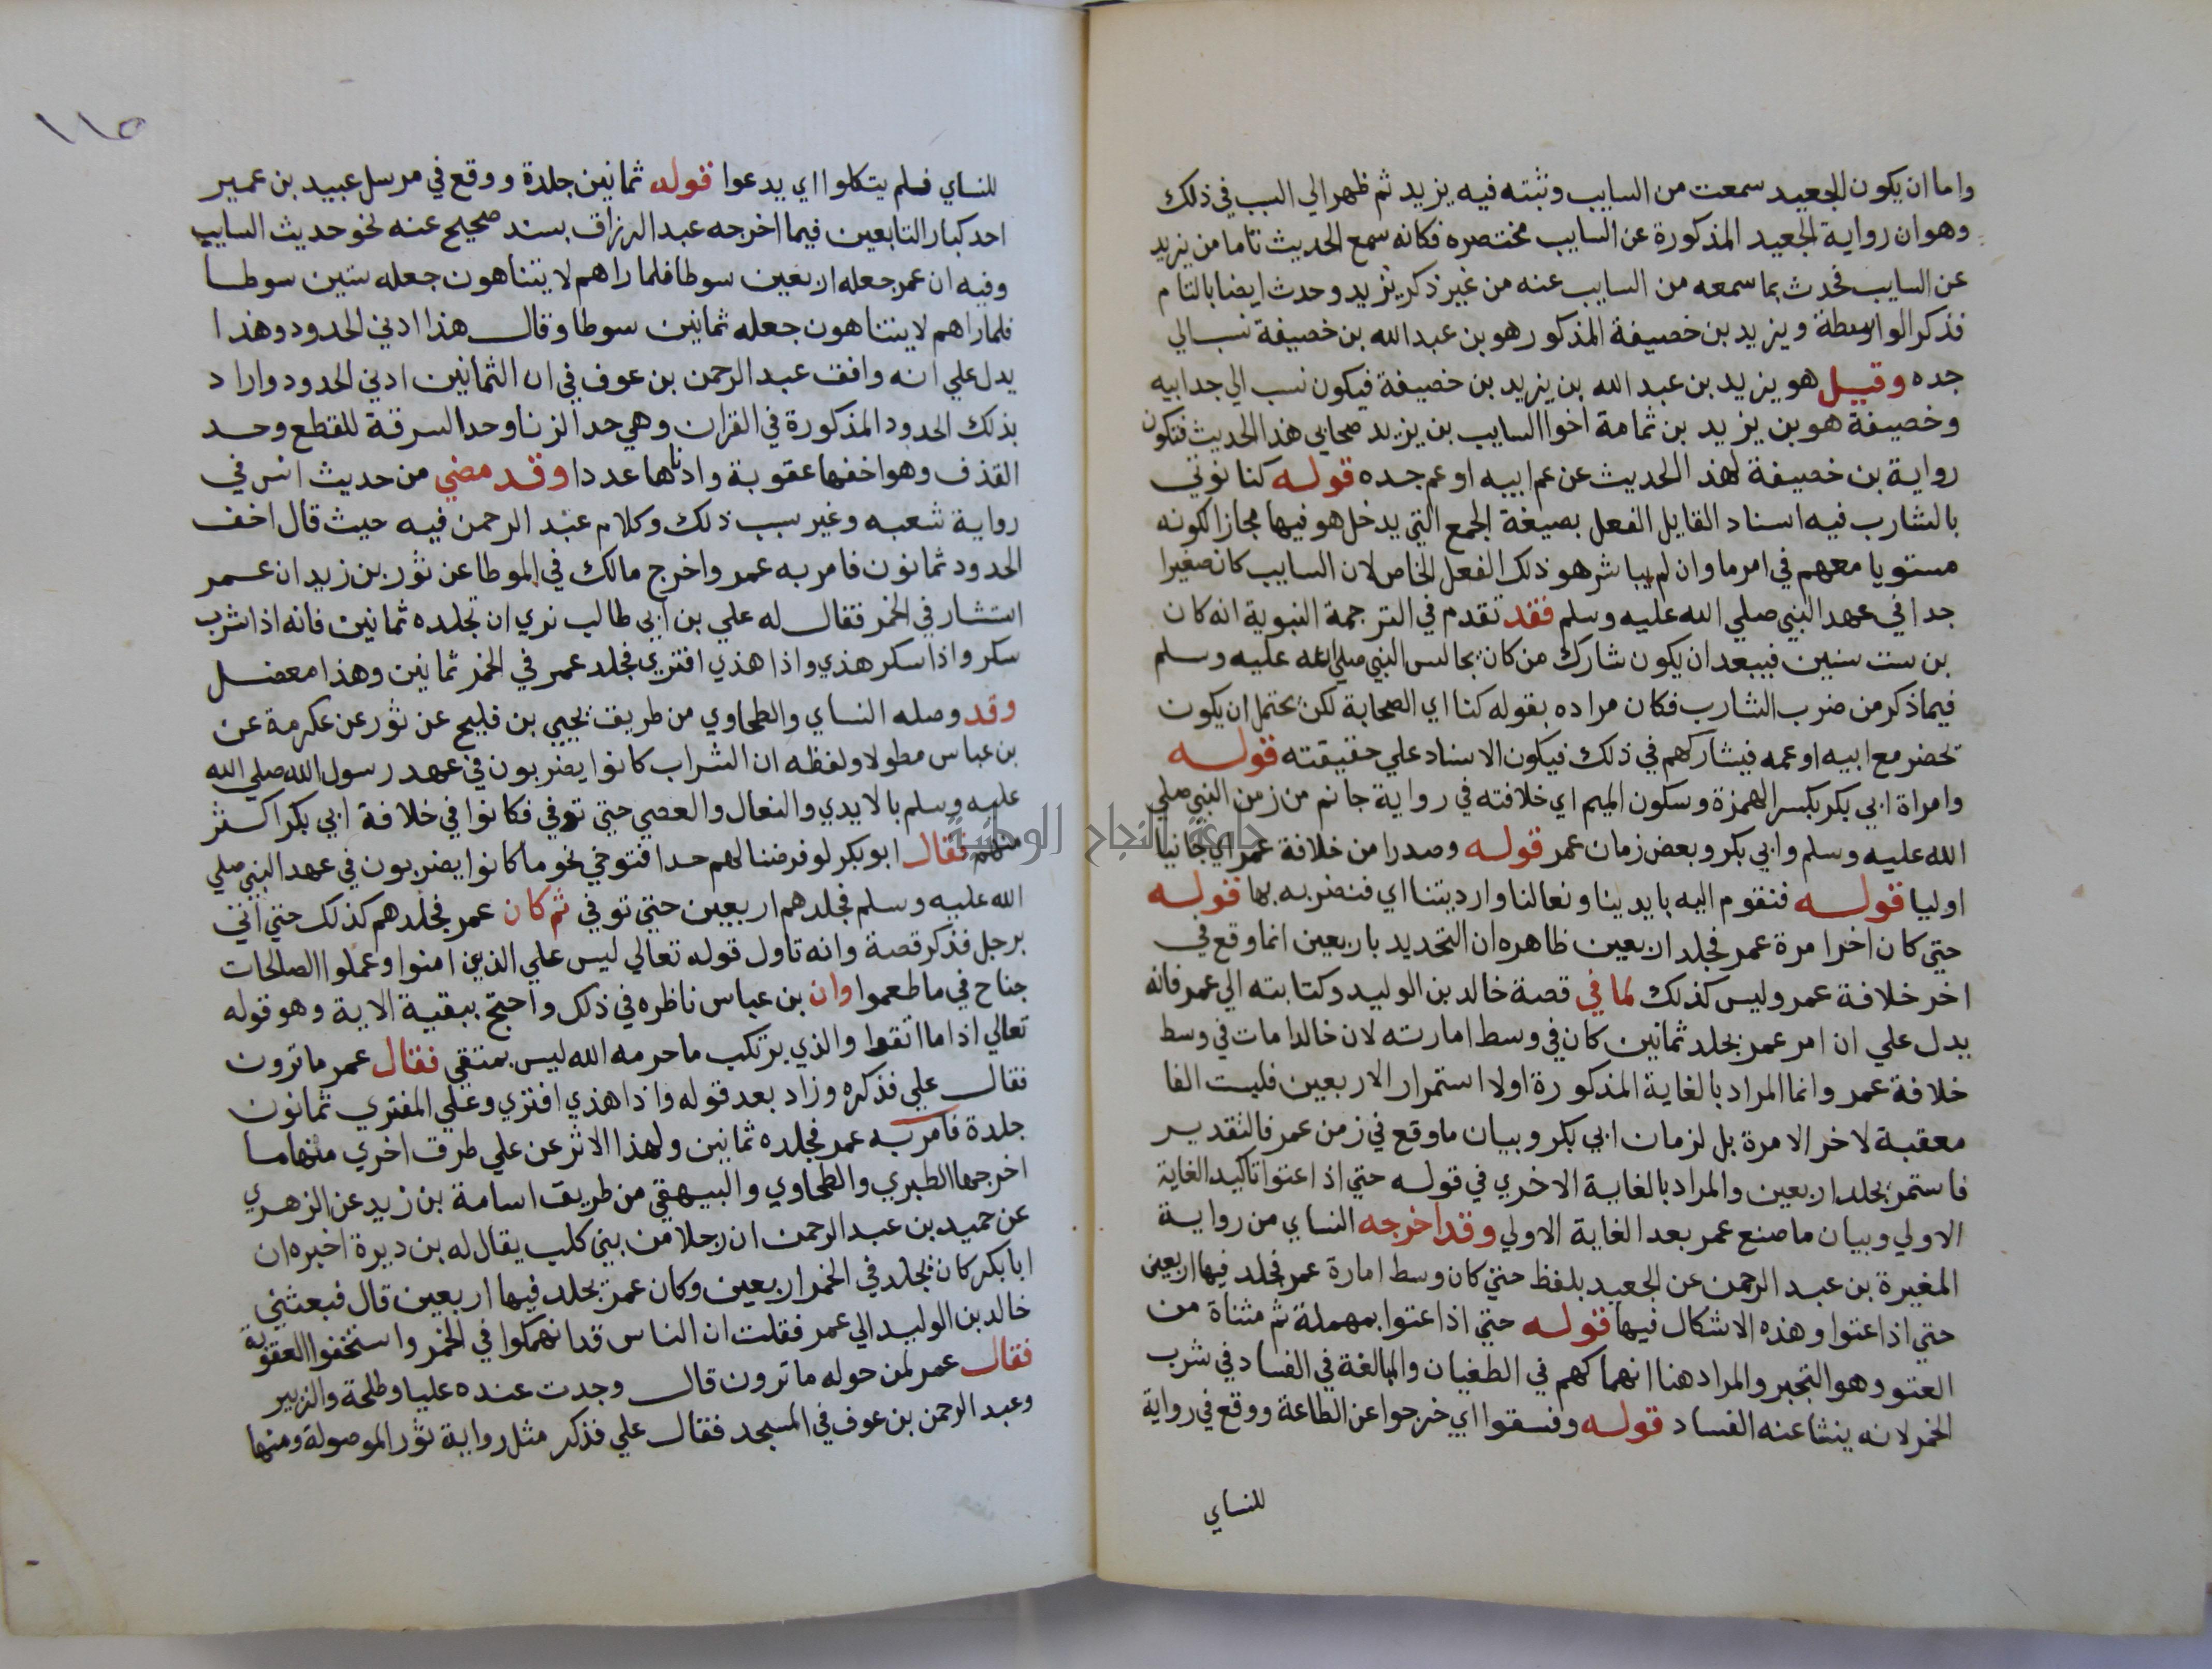 واما ان يكون الجعيد سمعت من السايب وثبته فيه يزيد ثم ظهر الي السبب في ذلك
وهو ان رواية الجعيد المذكورة عن السايب مختصره فكانه سمع الحديث تاما من يزيد
عن السايب فحدث بما سمعه من السايب عنه من غير ذكر يزيد وحدث ايضا بالتام
فذكر الواسطة ويزيد بن خصيفة المذكور هو بن عبد الله بن خصيفة نسب الي
جده وقيل هو يزيد بن عبد الله بن يزيد بن خصيفة فيكون نسب الي جد ابيه
وخصيفة هو بن يزيد بن ثمامة اخوا السايب بن يزيد صحابي هذا الحديث فتكون
رواية بن خصيفة لهذ الحديث عن عم ابيه او عم جده قوله كنا نوتي
بالشارب فيه اسناد القايل الفعل بصيغة الجمع التي يدخل هو فيها مجازا لكونه
مستويا معهم في امر ما وان لم يباشر هو ذلك الفعل الخاص لان السايب كان صغيرا
جدا في عهد النبي صلي الله عليه وسلم فقد تقدم في الترجمة النبوية انه كان
بن ست سنين فيبعد ان يكون شارك من كان يجالس النبي صلي الله عليه وسلم
فيما ذكر من ضرب الشارب فكان مراده بقوله كنا اي الصحابة لكن يحتمل ان يكون
تحضر مع ابيه او عمه فيشاركهم في ذلك فيكون الاسناد علي حقيقته قوله
وامراة ابي بكر بكسر الهمزة وسكون الميم اي خلافته في رواية حاتم من زمن النبي صلي
الله عليه وسلم وابي بكر وبعض زمان عمر قوله وصدرا من خلافة عمر اي جانبا
اوليا قوله فنقوم اليه بايدينا ونعالنا وارديتنا اي فنضربه بها قوله
حتي كان اخر امرة عمر فجلد اربعين ظاهره ان التحديد باربعين انما وقع في
اخر خلافة عمر وليس كذلك لما في قصة خالد بن الوليد وكتابته الي عمر فانه
يدل علي ان امر عمر بجلد ثمانين كان في وسط امارته لان خالدا مات في وسط
خلافة عمر وانما المراد بالغاية المذكورة اولا استمرار الاربعين فليست الفا
معقبة لاخر الامرة بل لزمان ابي بكر وبيان ما وقع في زمن عمر فالتقدير
فاستمر بجلد اربعين والمراد بالغاية الاخري في قوله حتي اذا عتوا تاكيد الغاية
الاولي وبيان ما صنع عمر بعد الغاية الاولي وقد اخرجه النساي من رواية
المغيرة بن عبد الرحمن عن الجعيد بلفظ حتي كان وسط امارة عمر فجلد فيها اربعين
حتي اذا عتوا وهذه الاشكال فيها قوله حتي اذا عتوا بمهملة ثم مثناة من
العتو وهو التجبر والمراد هنا انهماكهم في الطغيان والمبالغة في الفساد في شرب
الخمر لانه ينشا عنه الفساد قوله وفسقوا اي خرجوا عن الطاعة ووقع في رواية
للنساي
١١٥
للنساي فلم يتكلوا اي يدعوا قوله ثمانين جلدة ووقع في مرسل عبيد بن عمير
احد كبار التابعين فيما اخرجه عبد الرزاق بسند صحيح عنه نحو حديث السايب
وفيه ان عمر جعله اربعين سوطا فلما راهم لا يتناهون جعله ستين سوطا
فلما راهم لا يتناهون جعله ثمانين سوطا وقال هذا ادني الحدود وهذا
يدل علي انه وافق عبد الرحمن بن عوف في ان الثمانين ادني الحدود واراد
بذلك الحدود المذكورة في القران وهي حد الزنا وحد السرقة للقطع وحد
القذف وهو اخفها عقوبة وادناها عددا وقد مضي من حديث انس في
رواية شعبه وغير سبب ذلك وكلام عبد الرحمن فيه حيث قال اخف
الحدود ثمانون فامر به عمر واخرج مالك في الموطا عن ثور بن زيد ان عمر
استشار في الخمر فقال له علي بن ابي طالب نري ان تجلده ثمانين فانه اذا شرب
سكر واذا سكر هذي واذا هذي افتري فجلد عمر في الخمر ثمانين وهذا معضل
وقد وصله النساي والطحاوي من طريق يحيي بن فليح عن ثور عن عكرمة عن
بن عباس مطولا ولفظه ان الشراب كانوا يضربون في عهد رسول الله صلي الله
عليه وسلم بالايدي والنعال والعصي حتي توفي فكانوا في خلافة ابي بكر اكثر
منهم فقال ابو بكر لو فرضنا لهم حدا فتوخي نحو ما كانوا يضربون في عهد النبي صلي
الله عليه وسلم فجلدهم اربعين حتي توفي ثم كان عمر فجلدهم كذلك حتي اتي
برجل فذكر قصة وانه تاول قوله تعالي ليس علي الذين امنوا وعملوا الصالحات
جناح في ما طعموا وان بن عباس ناظره في ذلك واحتج ببقية الاية وهو قوله
تعالي اذا ما اتقوا والذي يرتكب ما حرمه الله ليس بمتقي فقال عمر ما ترون
فقال علي فذكره وزاد بعد قوله واذا هذي افتري وعلي المفتري ثمانون
جلدة فامر به عمر فجلده ثمانين ولهذا الاثر عن علي طرق اخري منها ما
اخرجها الطبري والطحاوي والبيهقي من طريق اسامة بن زيد عن الزهري
عن حميد بن عبد الرحمن ان رجلا من بني كلب يقال له بن دبرة اخبره ان
ابا بكر كان يجلد في الخمر اربعين وكان عمر يجلد فيها اربعين قال فبعثني
خالد بن الوليد الي عمر فقلت ان الناس قد انهمكوا في الخمر واستخفوا العقوبة
فقال عمر لمن حوله ما ترون قال وجدت عنده عليا وطلحة والزبير
وعبد الرحمن بن عوف في المسجد فقال علي فذكر مثل رواية ثور الموصولة ومنها
جامعة النجاح الوطنية